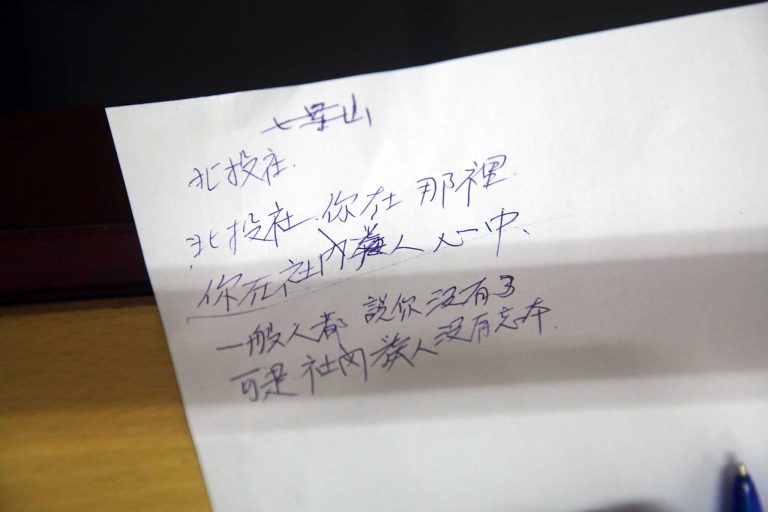 七星山
北投社.
北投社.你在那裡
你在社內族人心中、
一般人都說你没有了
可是社內族人没有忘本.